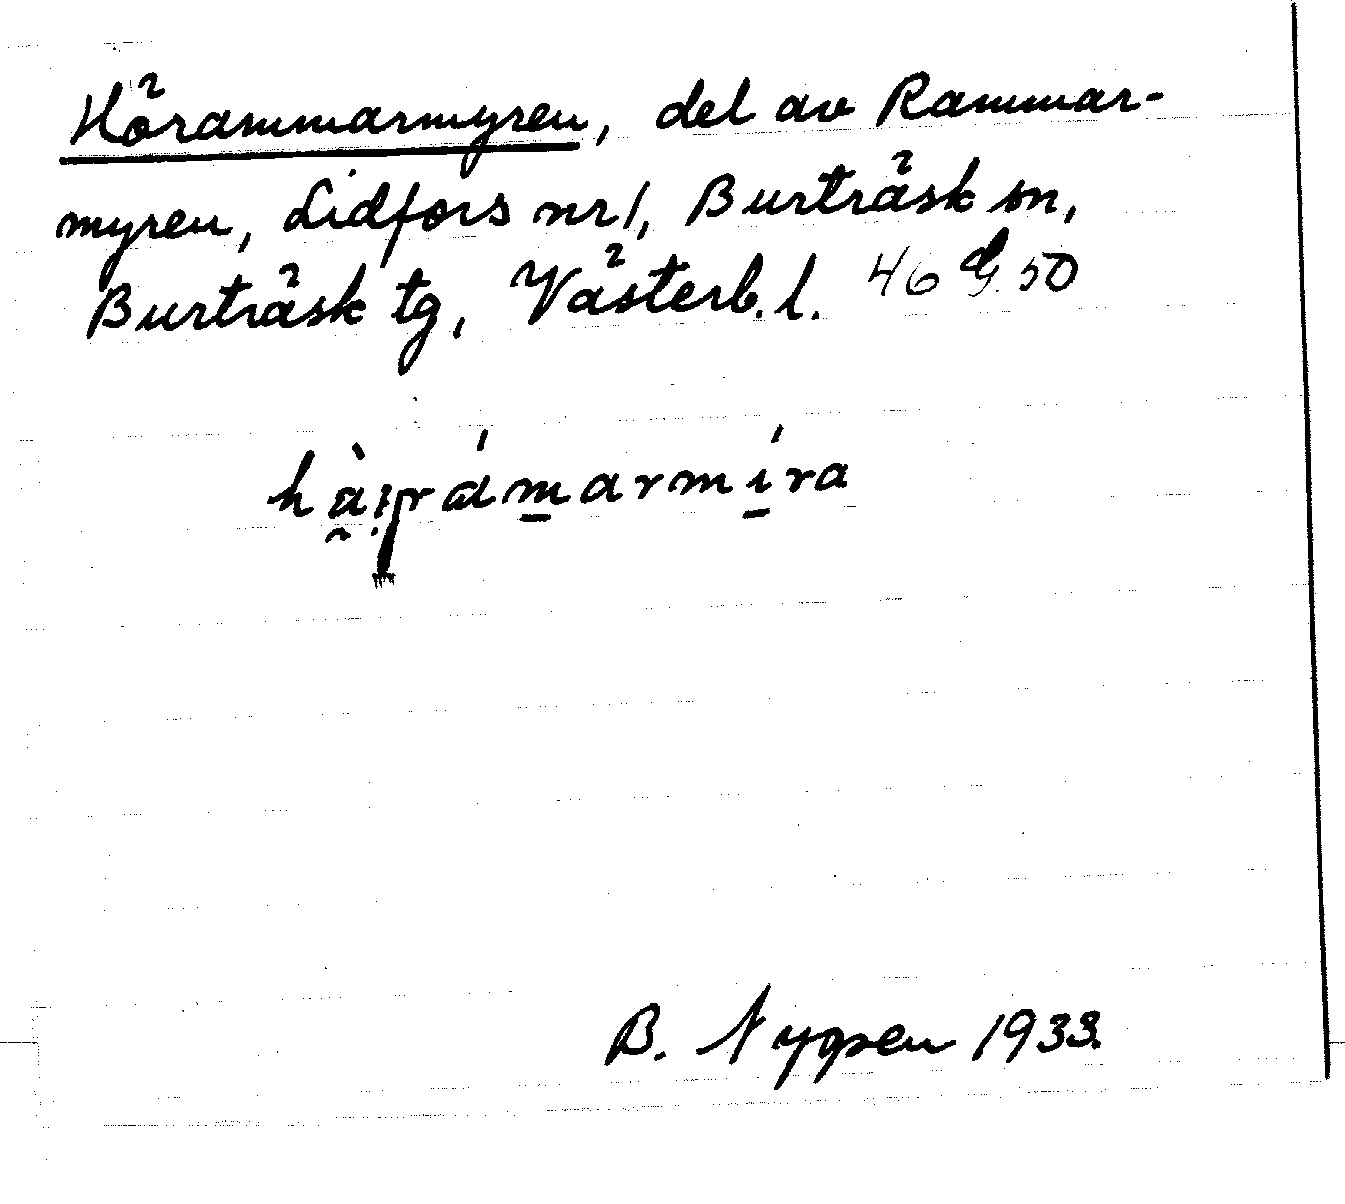 Hörammarmyren, del av Rammar-
myren, Lidfors nr 1, Burträsk sn,
Burträsk tg, Västerb. l. 46 G. 50
B. Nygren 1933.